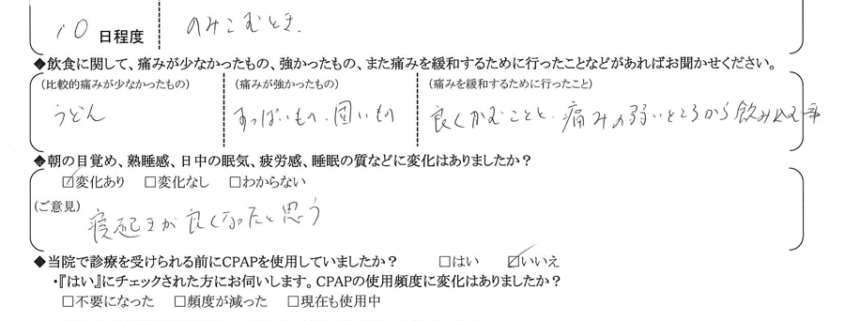 10 日程度 のみこむとき.
◆飲食に関して、痛みが少なかったもの、強かったもの、また痛みを緩和するために行ったことなどがあればお聞かせください。
(比較的痛みが少なかったもの) (痛みが強かったもの) (痛みを緩和するために行ったこと)
うどん すっぱいもの、固いもの 良くかむことと、痛みの弱いところから飲み込む事
◆朝の目覚め、熟睡感、日中の眠気、疲労感、睡眠の質などに変化はありましたか？
☑変化あり □変化なし □わからない
(ご意見)
寝起きが良くなったと思う
◆当院で診療を受けられる前にCPAPを使用していましたか？ □はい ☑いいえ
・『はい』にチェックされた方にお伺いします。CPAPの使用頻度に変化はありましたか？
□不要になった □頻度が減った □現在も使用中